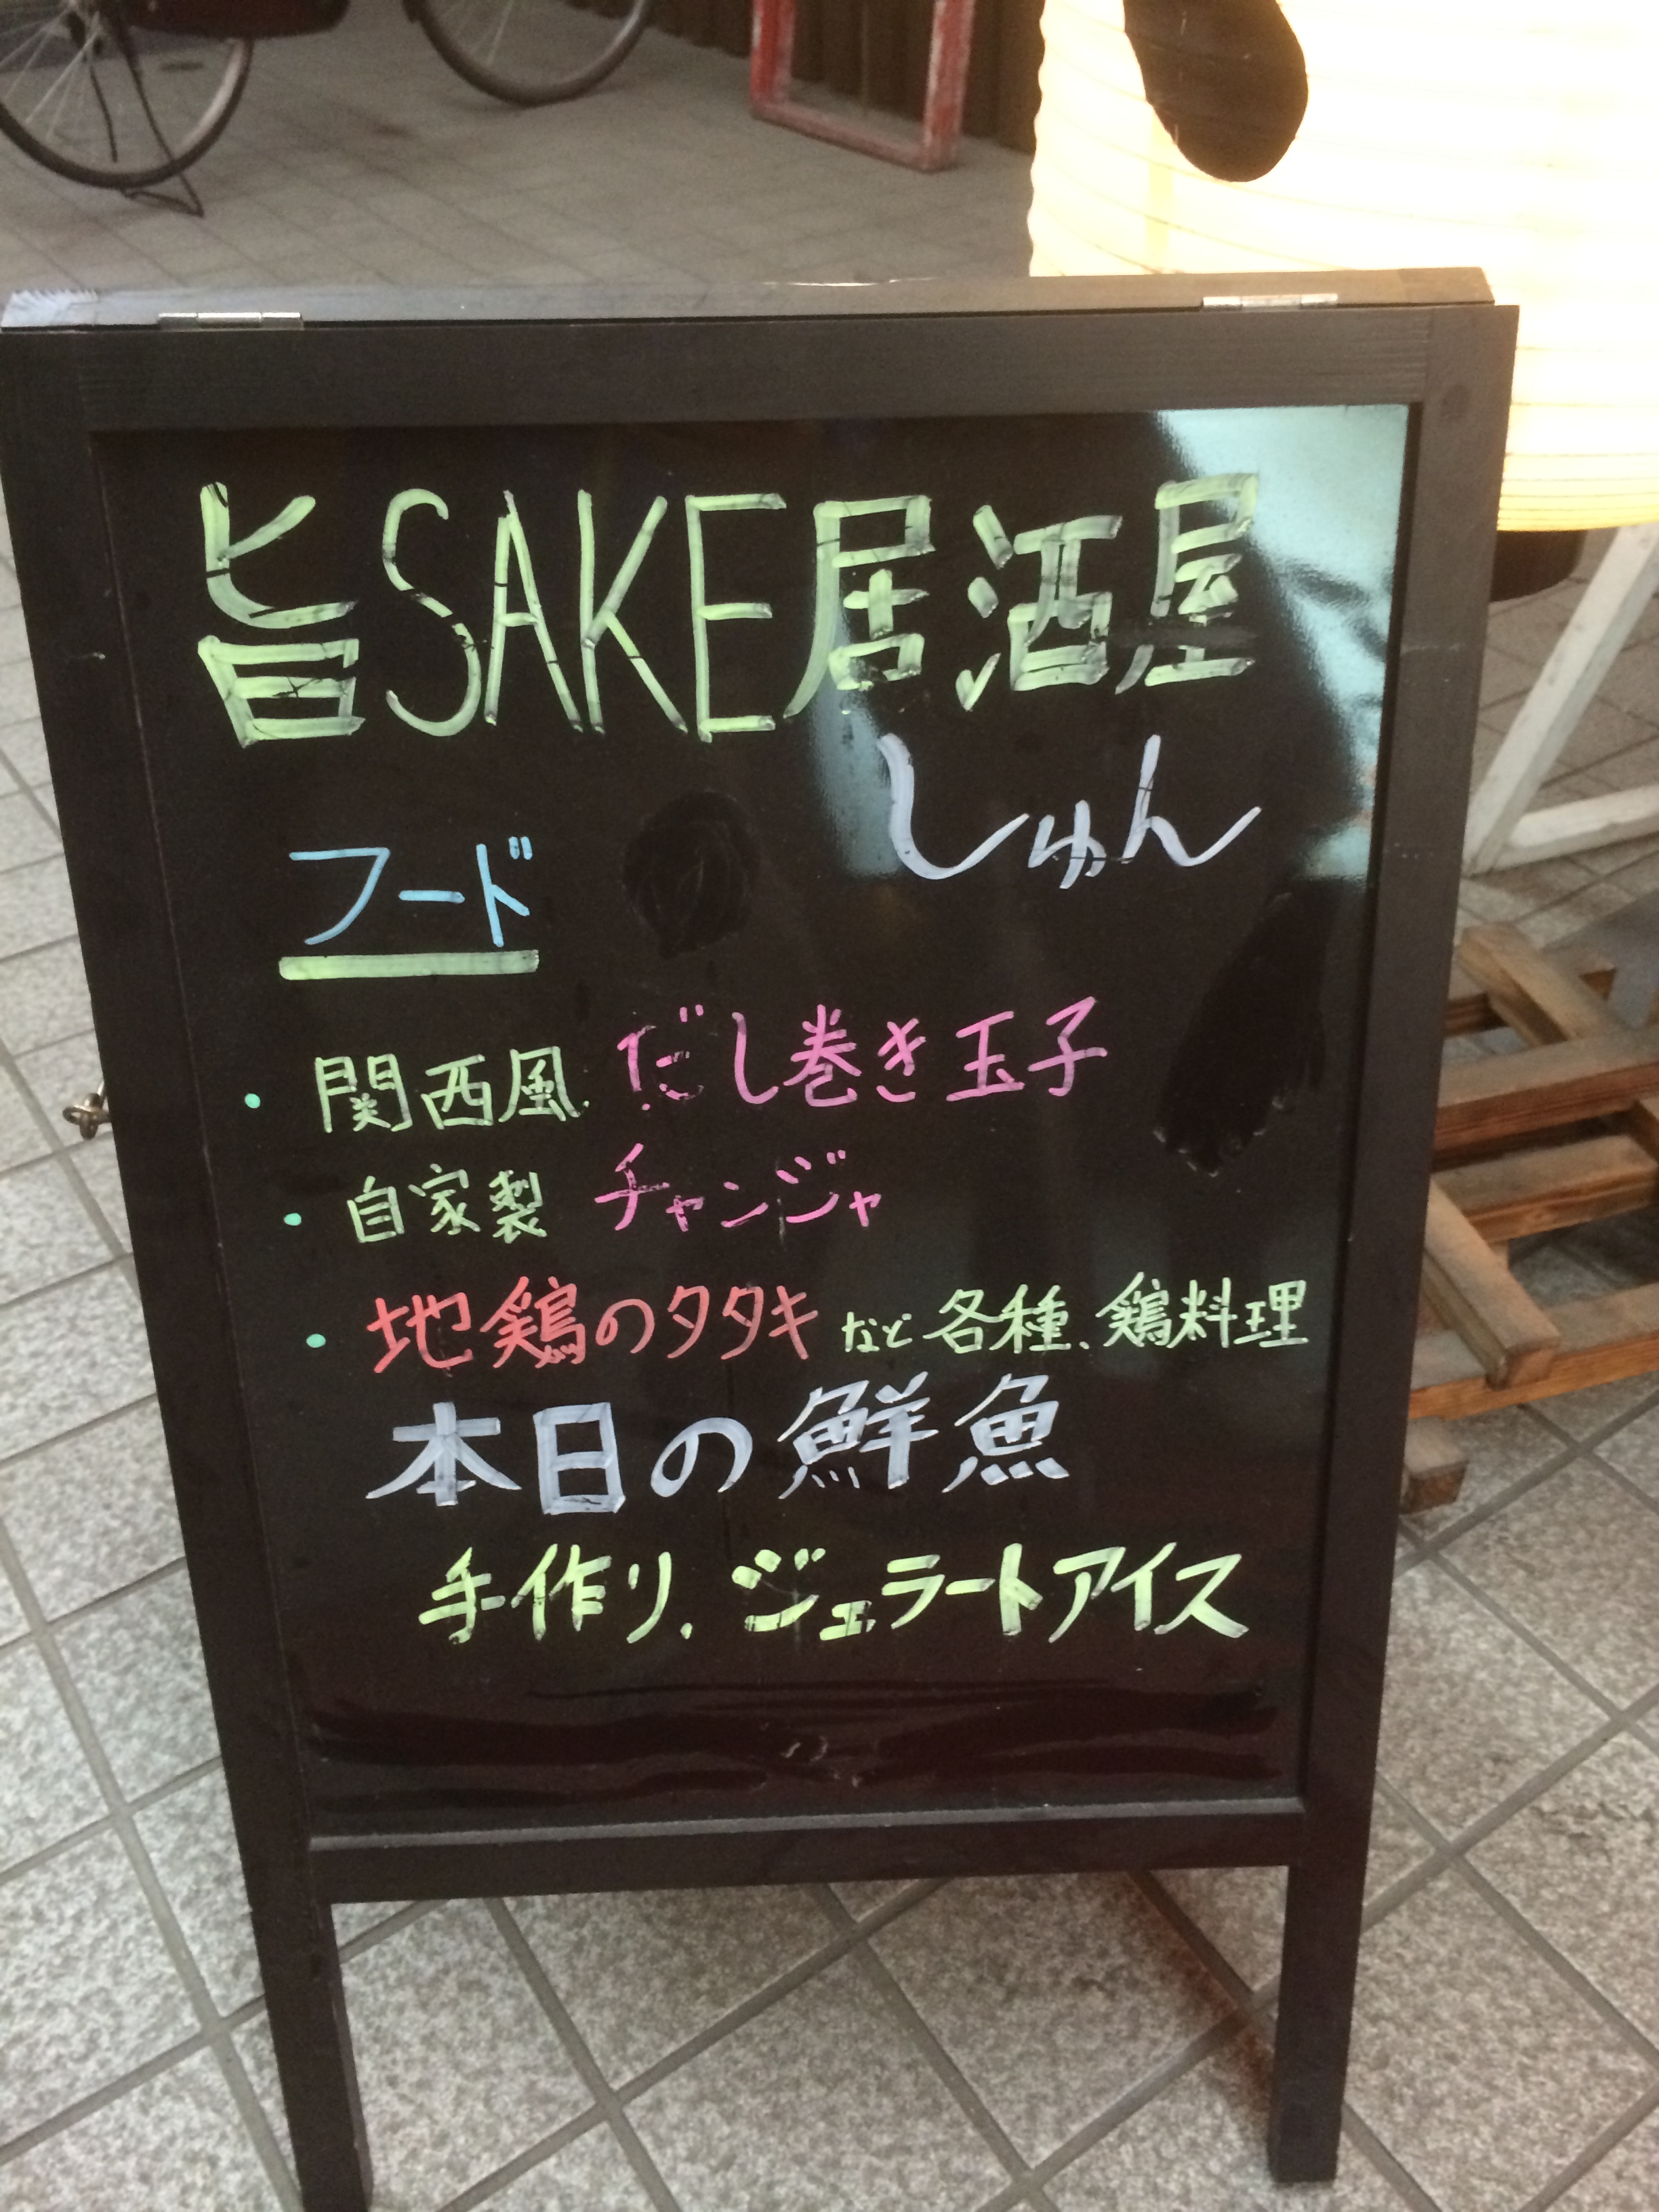 旨SAKE居酒屋
しゅん
フード
・関西風 だし巻き玉子
・自家製 チャンジャ
・地鶏のタタキ など各種、鶏料理
本日の鮮魚
手作り、ジェラートアイス